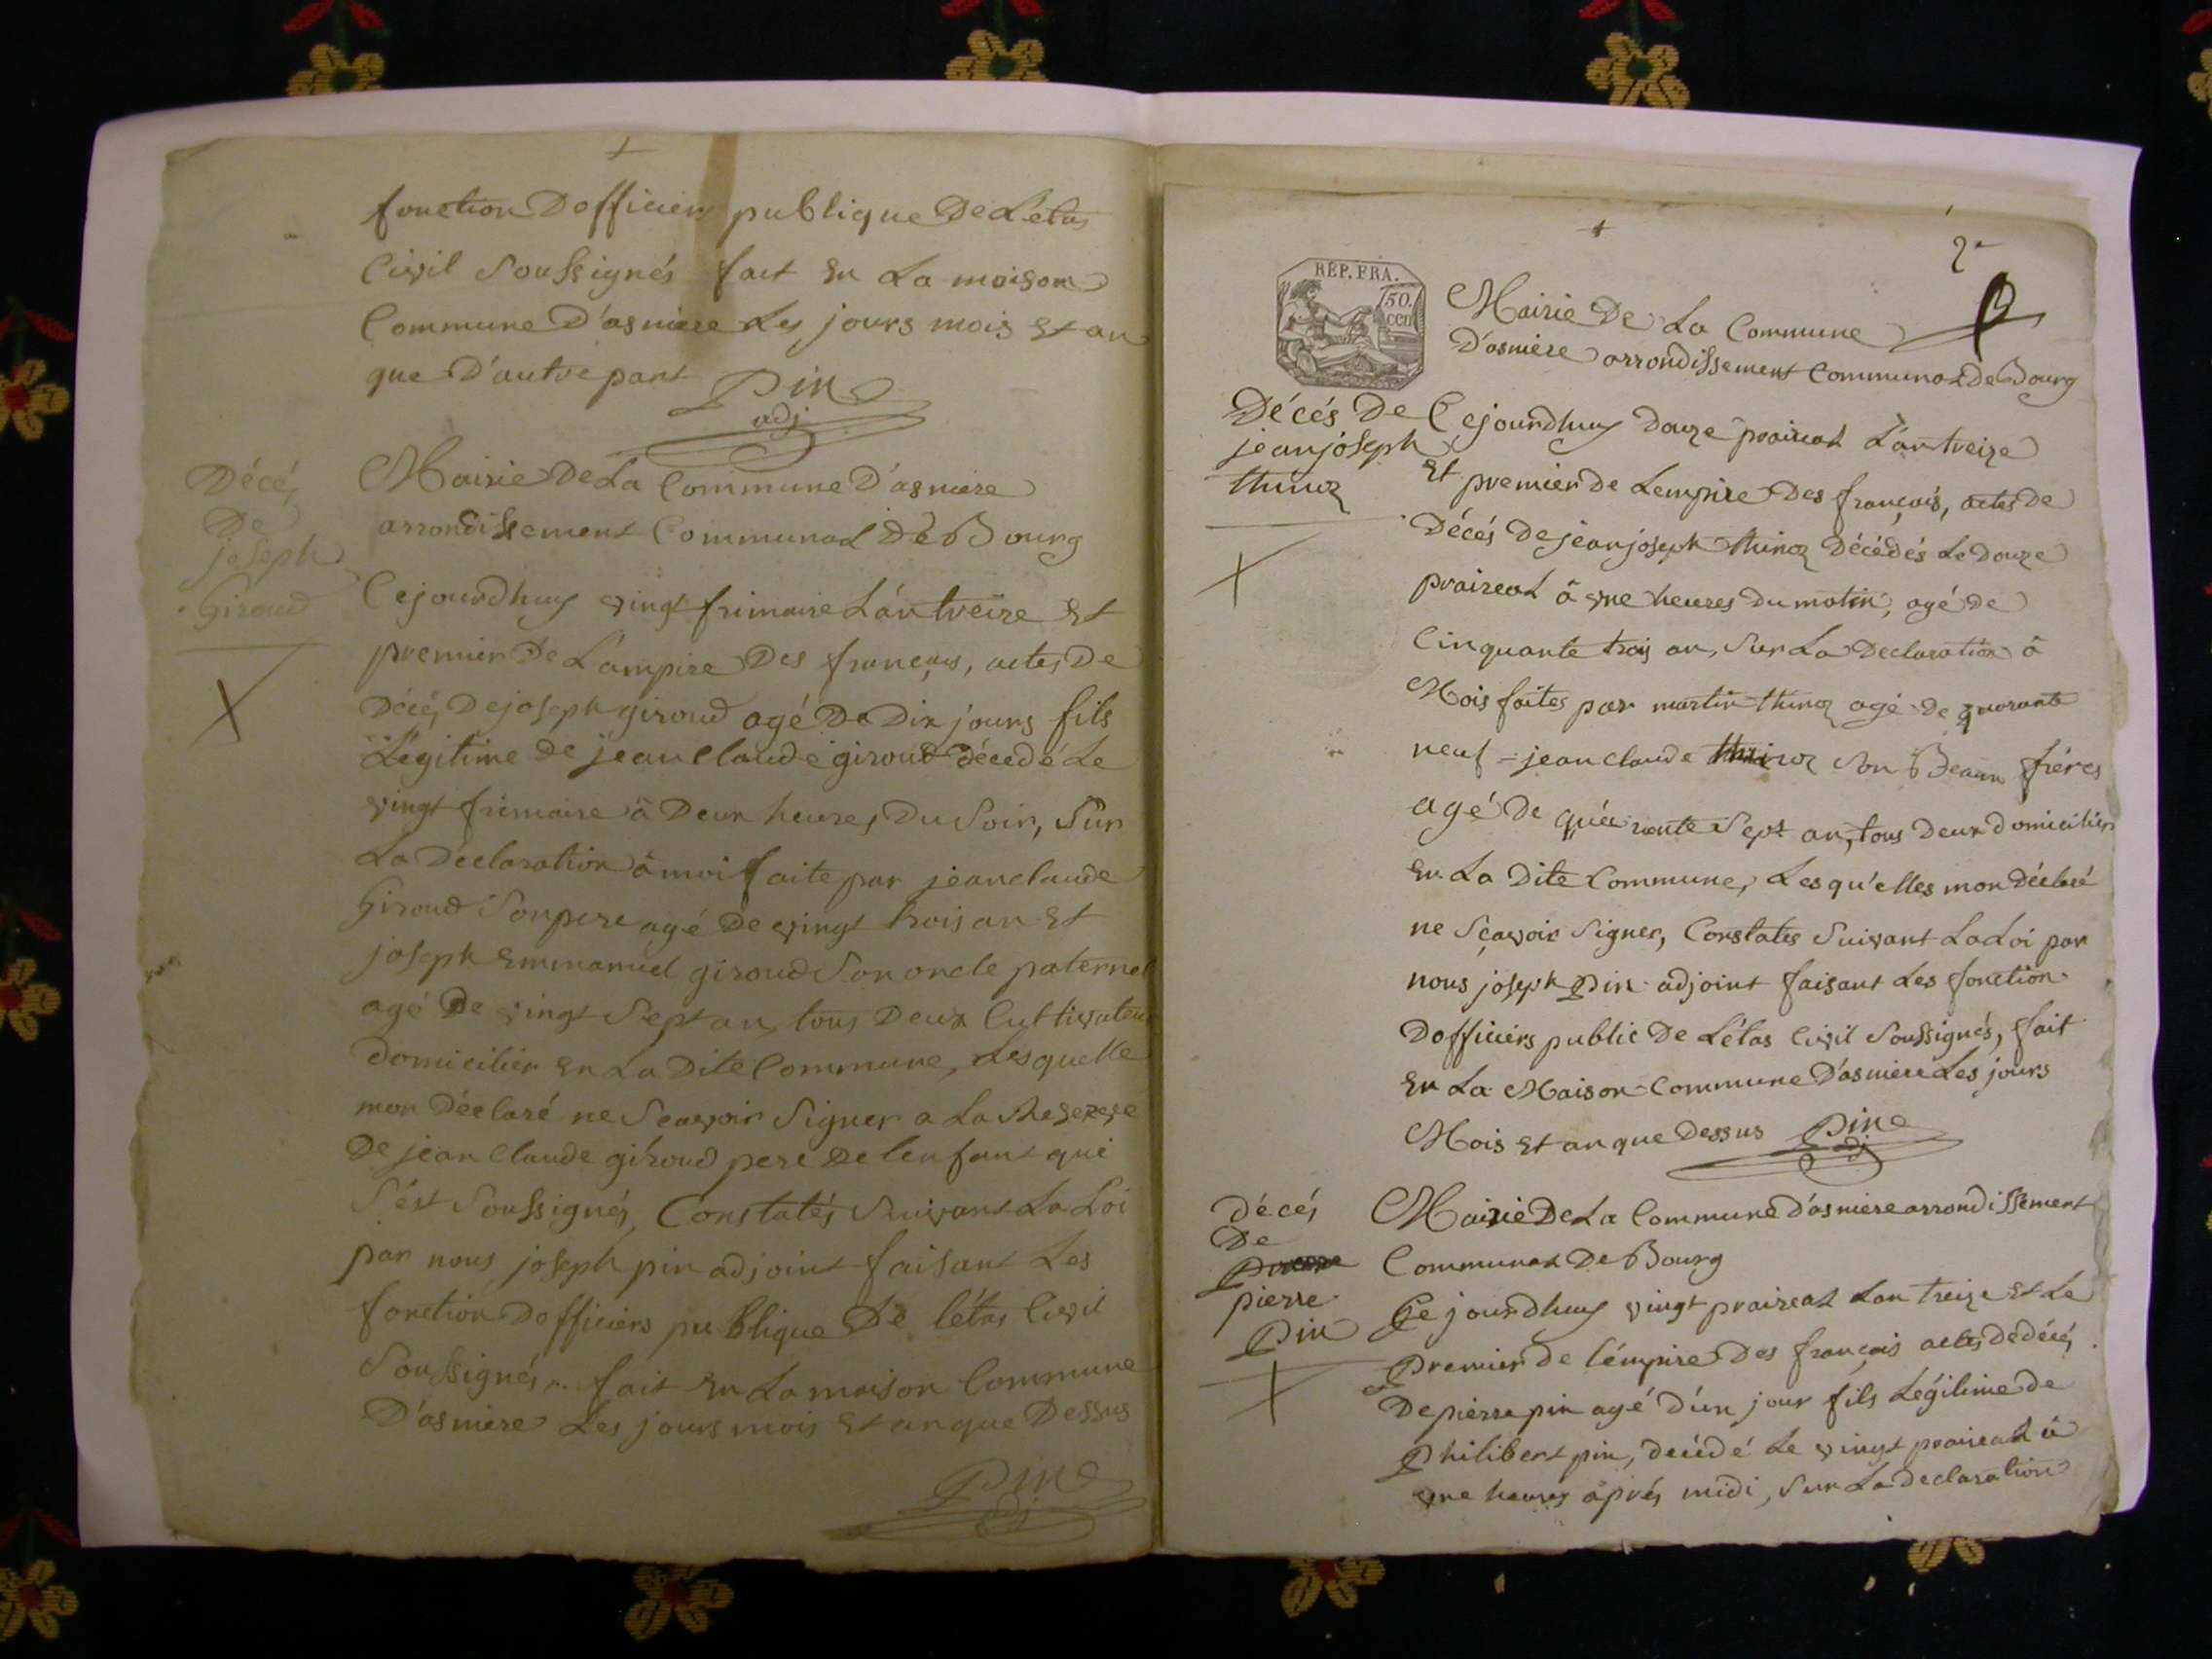 fonction Dofficiers publique De Létas
Civil Soussignés fait En La maison
Commune D'asniere Les jours mois Et an
que D'autre part Pin
adj
Décés
De
joseph
Giroud
Mairie De La Commune D'asniere
arrondissement Communal De Bourg
Cejourdhuy vingt frimaire L'an treize Et
premier De L'ampire Des françois, actes De
Décés De joseph giroud agé De Dix jours fils
Légitime de jean Claude giroud décedé Le
vingt frimaire à Deux heures Du Soir, Sur
La Déclaration à moi faite par jean claude
Giroud Son pere agé De vingt trois an Et
joseph Emmanuel giroud Son oncle paternel
agé De vingt Sept an, tous Deux Cultivateur
domicilier En La Dite Commune, Lesquelle
mon Déclaré ne Scavoir Signer a La Reserve
De jean Claude giroud pere De lenfant qui
S'ést Soussignés, Constatés Suivant La Loi
par nous joseph pin adjoint faisant Les
fonction Dofficiers publique De létas Civil
Soussignés, fait En La maison Commune
D'asniere Les jours mois Et an que Dessus
Pin
adj
2e
REP. FRA.
50.
cen
Mairie De La Commune
D'asniere arrondissement Communal De Bourg
Décés De
jean joseph
thinoz
Cejourdhuy Douze prairial L'an treize
Et premier de Lempire Des françois, actes de
Décés De jean joseph thinoz Décédés Le Douze
praireal à une heures Du matin, agé de
Cinquante trois an, Sur La Declaration à
Mois faites par martin thinoz agé De quarante
neuf - jean claude thinoz Son Beaux fréres
agé De quarante Sept an, tous Deux domicilier
En La Dite Commune, Lesqu'elles mon Déclaré
ne Sçavoir Signer, Constates Suivant La Loi par
nous joseph Pin adjoint faisant Les fonction
Dofficiers public De Létas Civil Soussignés, fait
En La Maison Commune D'asniere Les jours
Mois Et an que Dessus Pin
adj
Décés
De
pierre
Pin
Mairie De La Commune d'asniere arrondissement
Communal De Bourg
Ce jourdhuy vingt praireal Lan treize Et Le
Premier de l'émpire Des françois actes de décés
De pierre pin agé d'un jour fils Légitime de
Philibert pin, decédé Le vingt praireal à
une heures aprés midi, Sur La declaration